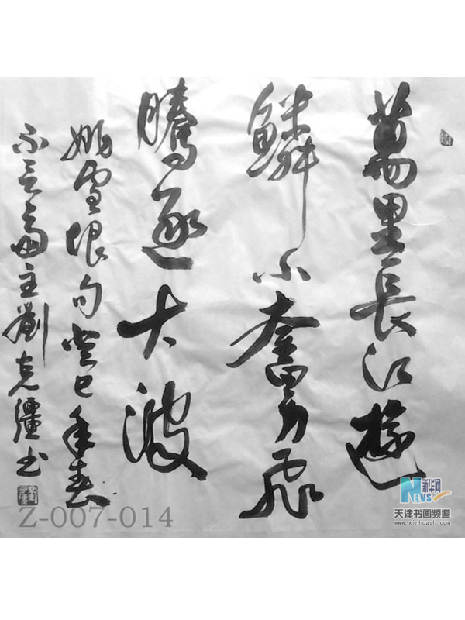 萬里長江
鱗小奮力飛
騰逐大波
姚雪垠句癸巳年春
不言齋主劉克疆书
Z-007-014
新华网
NEWS
天津书画频道